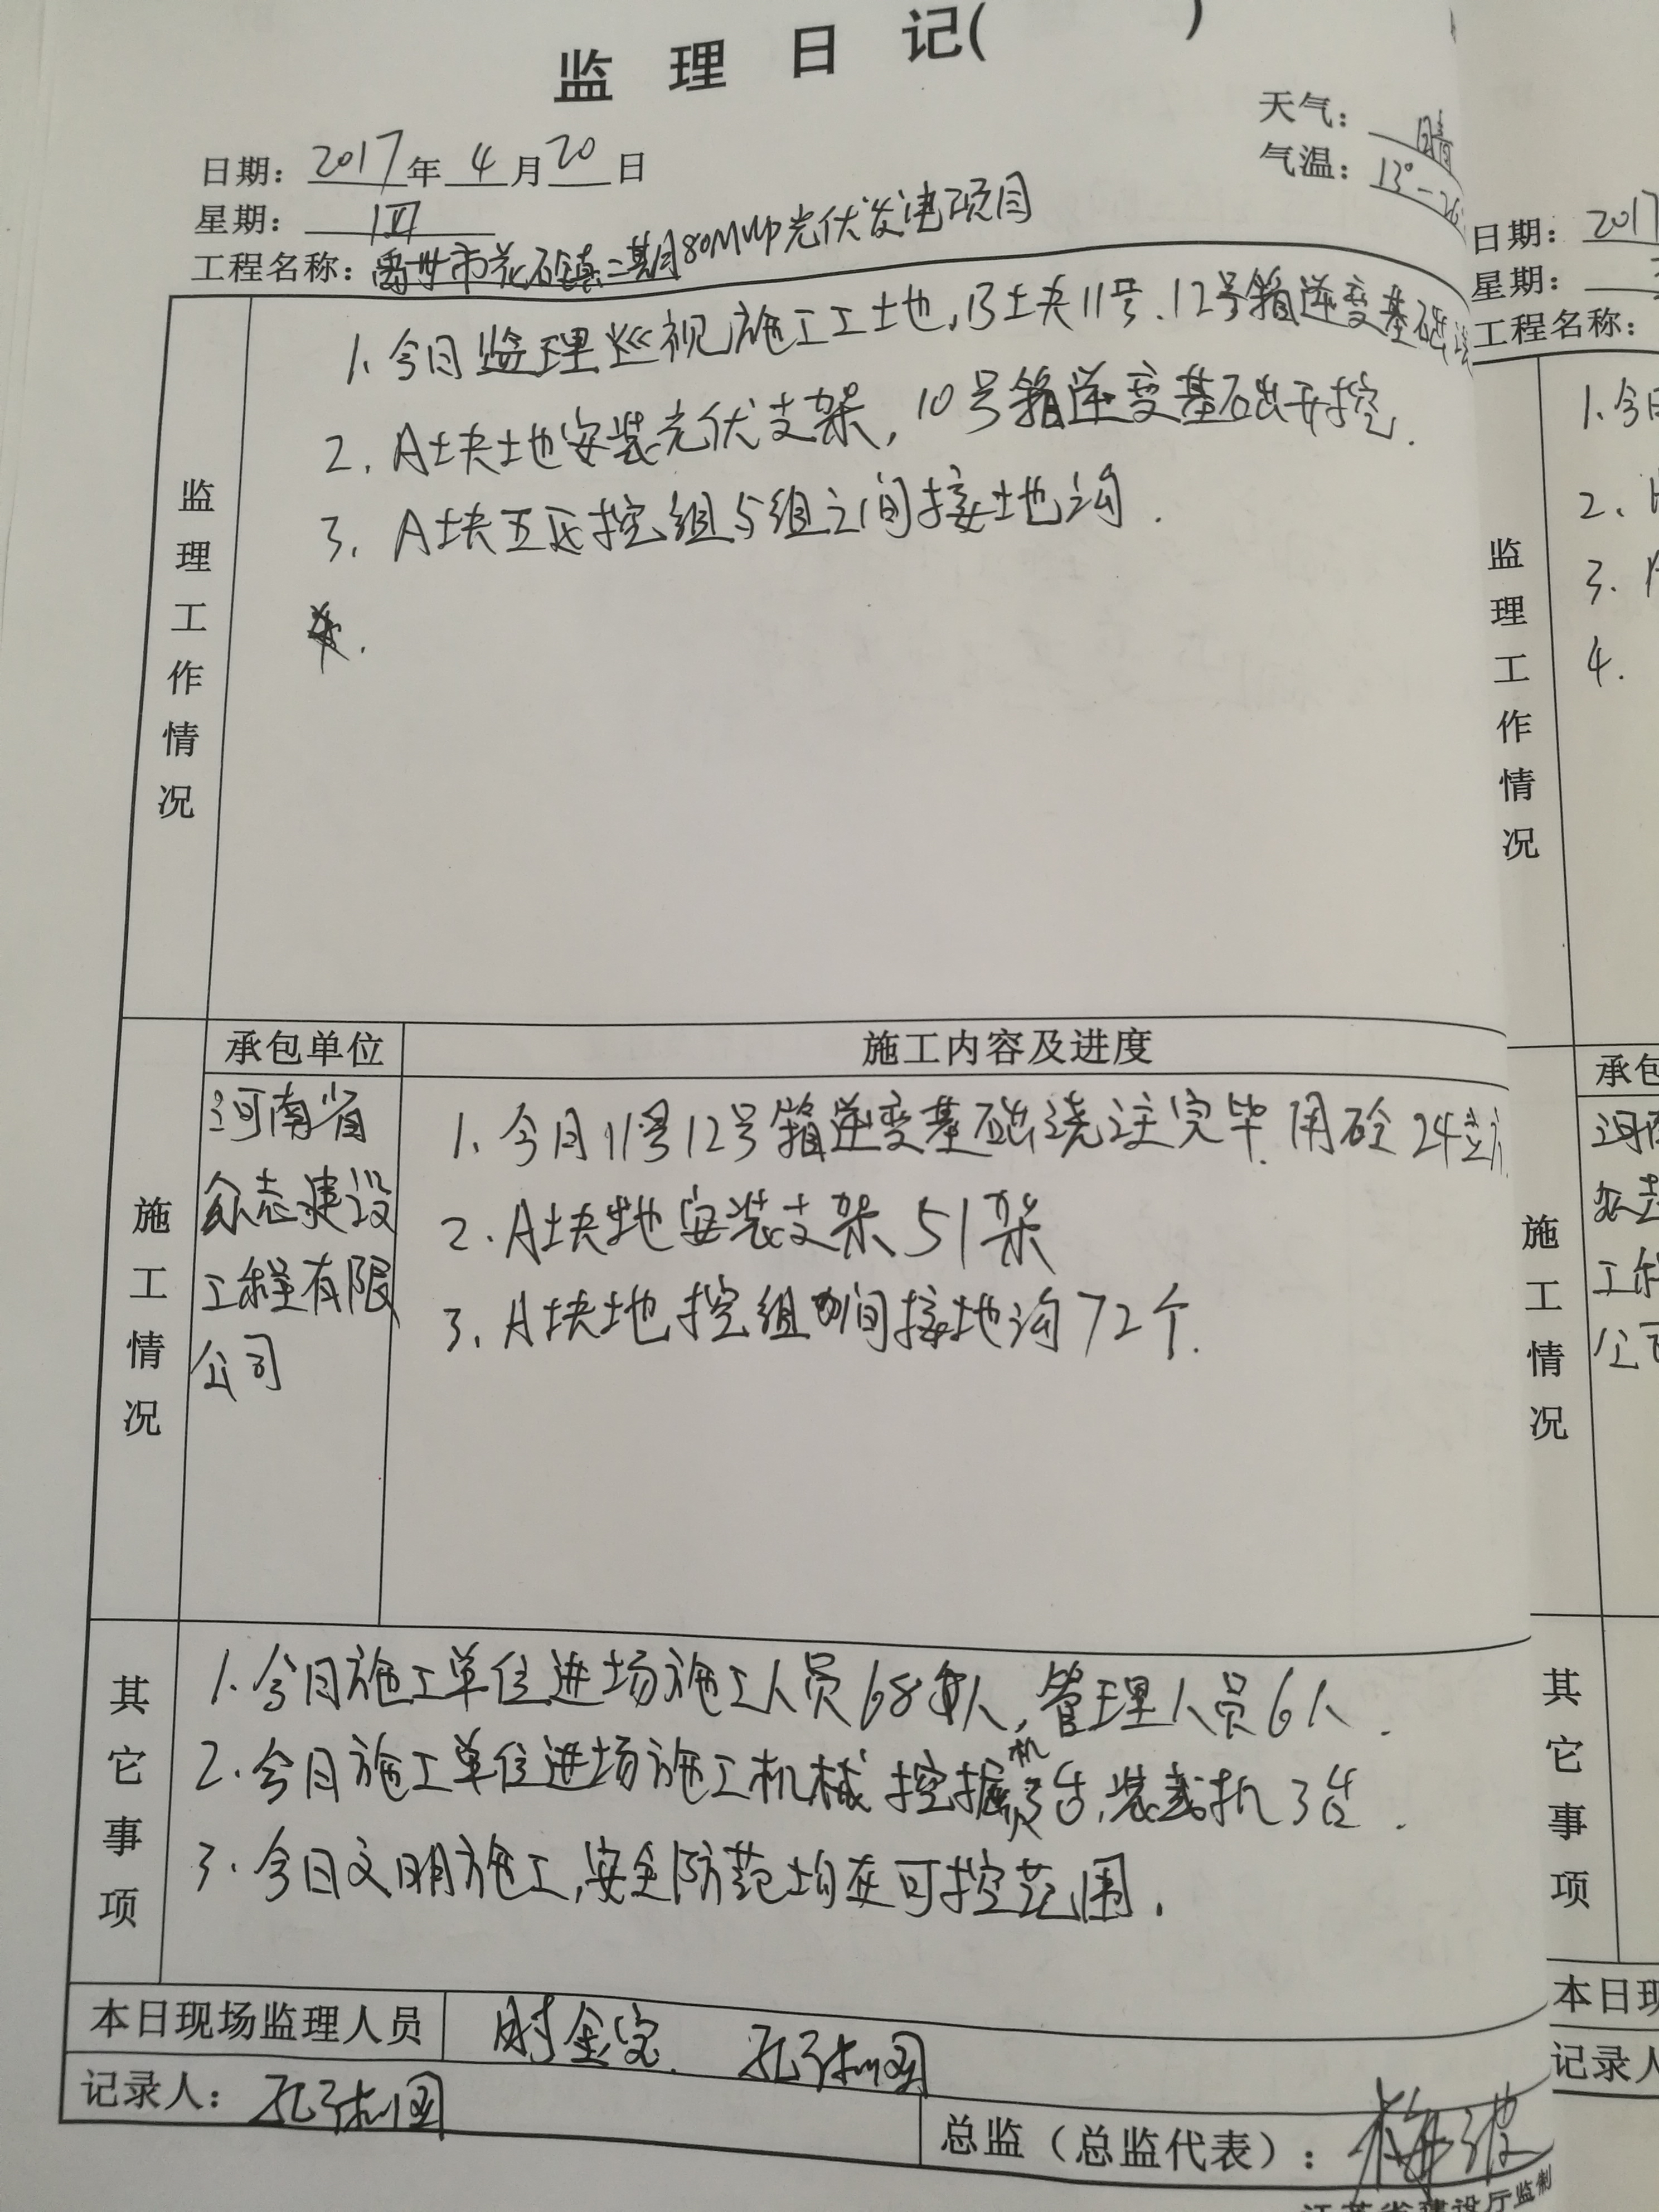 监 理 日 记( )
天气：晴
日期：2017年4月20日
气温：13°-26
星期：四
工程名称：禹州市花石镇二期80MWp光伏发电项目
监理工作情况
1.今日监理巡视施工工土地,B土夬11号.12号箱逆变基础
2.A块土地安装光伏支架,10号箱逆变基础开挖.
3.A块五正挖组与组之间接地沟.
承包单位 施工内容及进度
施工情况
河南省
众志建设
工程有限
公司
1.今日11号12号箱逆变基础浇注完毕.用砼24立方
2.A块地安装支架51架
3.A块地挖组间接地沟72个.
其它事项
1.今日施工单位进场施工人员68人,管理人员6人.
2.今日施工单位进场施工机械挖掘机3台,装载机3台.
3.今日文明施工,安全防范均在可控范围.
本日现场监理人员 时金宝
记录人：
总监（总监代表）：
江苏省建设厅监制
日期：2017
星期：
工程名称：
监理工作情况
1.今日
2.
3.
4.
承包
施工情况
河南
众志
工程
公司
其它事项
本日现
记录人